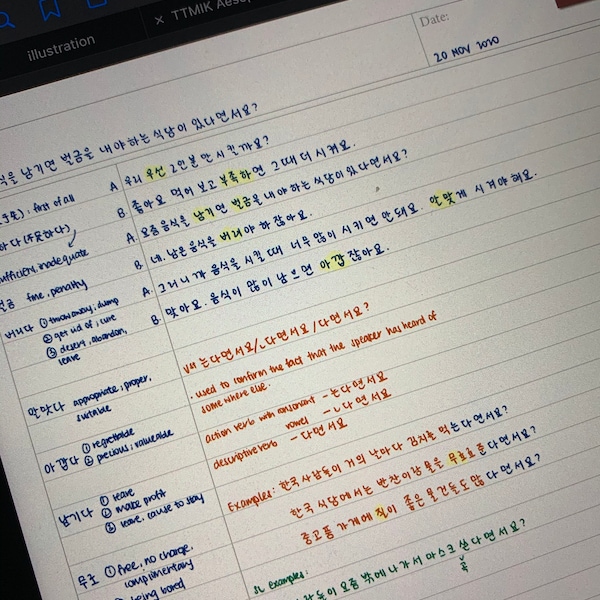 illustration
× TTMIK Aesop
Date:
20 NOV 2020
식을 남기면 벌금을 내야 하는 식당이 있다면서요?
first of all
하다 (不足하다)
insufficient, inadequate
벌금 fine, penalty
버리다 ① throw away, dump
② get rid of, cure
③ desert, abandon,
leave
알맞다 appropriate, proper,
suitable
아깝다 ① regrettable
② precious, valueable
남기다 ① leave
② make profit
③ leave, cause to stay
무료 ① free, no charge,
complimentary
② being bored
A. 우리 우선 2인분만 시킬까요?
B. 좋아요. 먹어 보고 부족하면 그때 더 시켜요.
A. 요즘 음식을 남기면 벌금을 내야 하는 식당이 있다면서요?
B. 네. 남은 음식을 버려야 하잖아요.
A. 그러니까 음식을 시킬 때 너무 많이 시키면 안 돼요. 알맞게 시켜야 해요.
B. 맞아요. 음식이 많이 남으면 아깝잖아요.
는다면서요/ㄴ다면서요/다면서요?
· used to confirm the fact that the speaker has heard of
some where else.
action verb with consonant - 는다면서요
vowel - ㄴ다면서요
descriptive verb - 다면서요
Examples: 한국 사람들이 거의 날마다 김치를 먹는다면서요?
한국 식당에서는 반찬이랑 물을 무료로 준다면서요?
중고품 가게에 질이 좋은 물건들도 많다면서요?
examples:
사람들이 요즘 밖에 나가서 마스크 쓴다면서요?
꼭